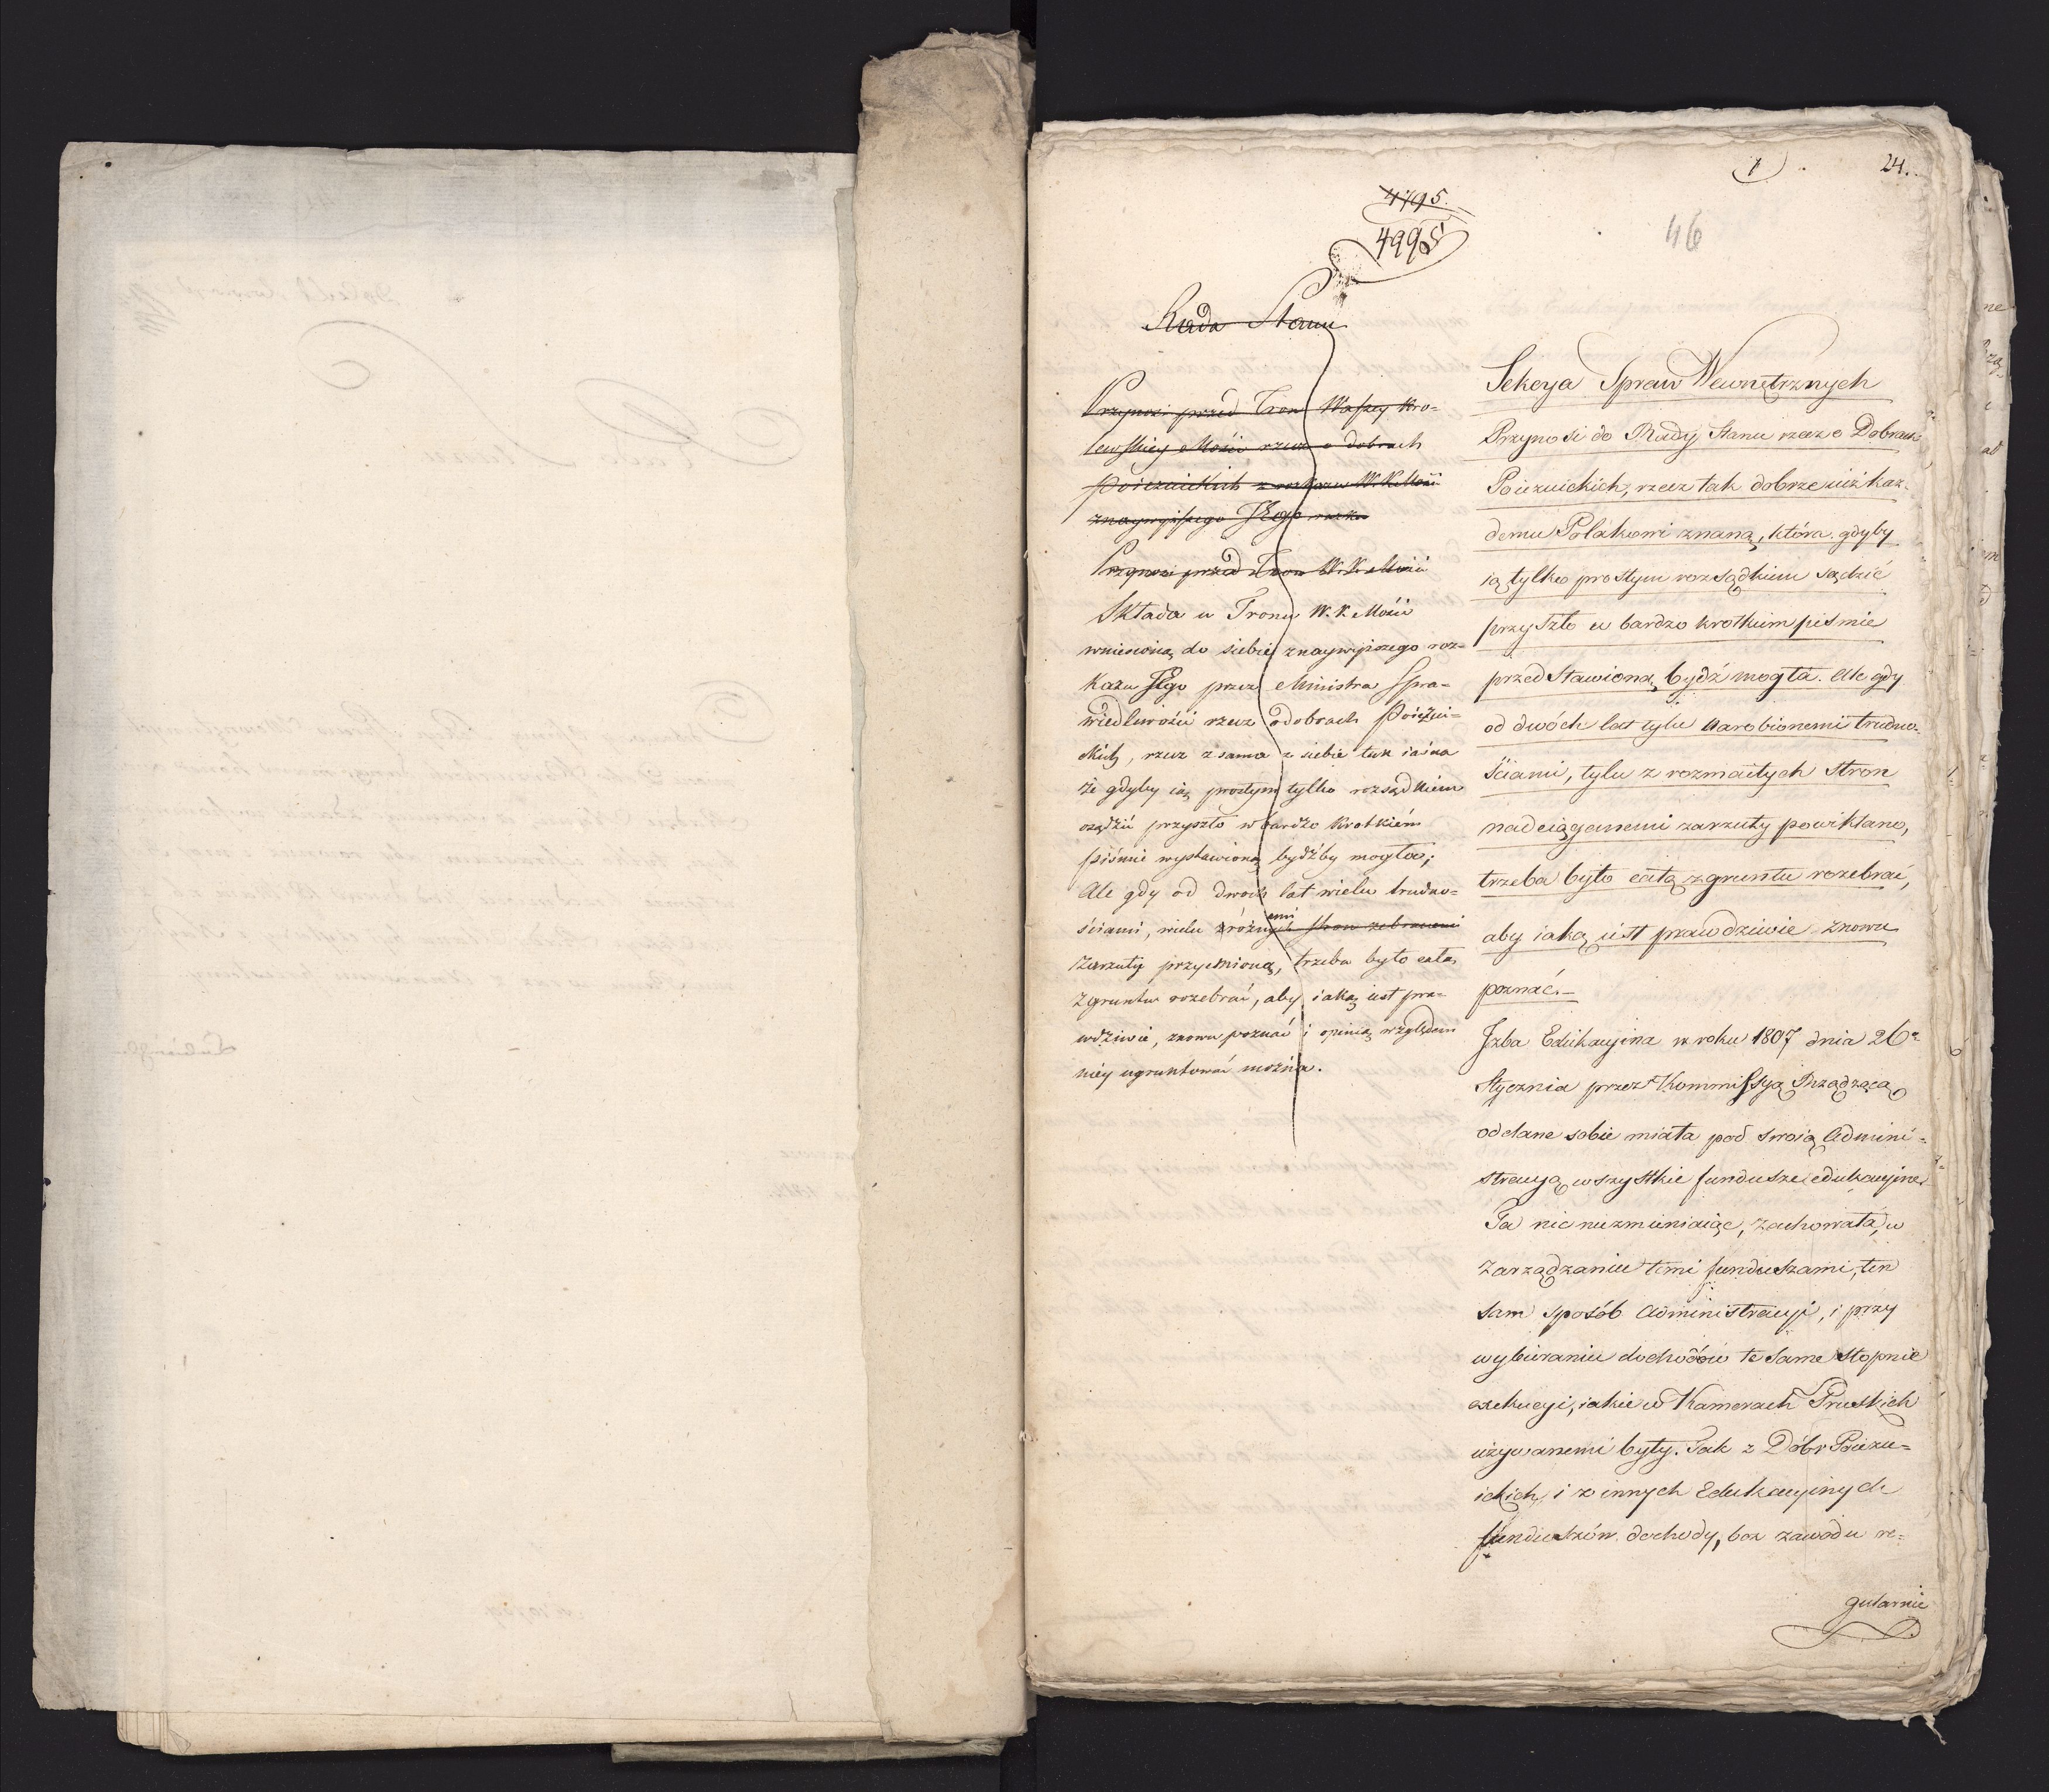 1
24.
46
4795.
4995
Rada Stanu
Przynosi przed Tron Waszey Kro-
lewskiey Mości rzecz o dobrach
Poiezuickich z rozkazu W. K. Mości
znaywyższego JEgo
Przynosi przed Tron W. K. Mości
Składa u Tronu W. K. Mości
wniesioną do siebie znaywyższego roz-
kazu JEgo przez Ministra Spra-
wiedliwości rzecz o dobrach Poiezui-
ckich, rzecz z sama z siebie tak iasna
że gdyby ią prostym tylko rozsądkiem
osądzić przyszło w bardzo krotkiém
piśmie wystawioną bydźby mogła;
Ale gdy od dwoch lat wielu trudno-
ściami, wielu różnych emi stron zebranemi
Zarzuty przyćmioną, trzeba było całą
z gruntu rozebrać, aby iaką iest pra-
wdziwie, znowu poznać i opinią względem
niéy ugruntować można.
Sekcya Spraw Wewnętrznych
Przynosi do Rady Stanu rzecz o Dobrach
Poiezuickich, rzecz tak dobrze iuż każ-
demu Polakowi znaną, która gdyby
ią tylko prostym rozsądkiem sądzić
przyszło w bardzo krotkim piśmie
przedstawioną bydź mogła. Ale gdy
od dwóch lat tylu narobionemi trudno-
ściami, tylu z rozmaitych stron
nadciąganemi zarzuty powikłano,
trzeba było całą z gruntu rozebrać,
aby iaką iest prawdziwie znowu
poznać.—
Jzba Edukacyina w roku 1807 dnia 26o
Stycznia przez Kommissyą Rządzącą
oddane sobie miała pod swoią Admini-
stracyą wszystkie fundusze edukacyine.
Ta nic niezmieniaiąc, zachowała, w
Zarządzaniu temi funduszami, ten
sam sposób Administracyi, i przy
wybieraniu dochodów te same stopnie
exekucyi, iakie w Kamerach Pruskich
używanemi były. Tak z Dóbr Poiezu-
ickich, i z innych Edukacyinych
funduszów dochody, bez zawodu re-
gularnie